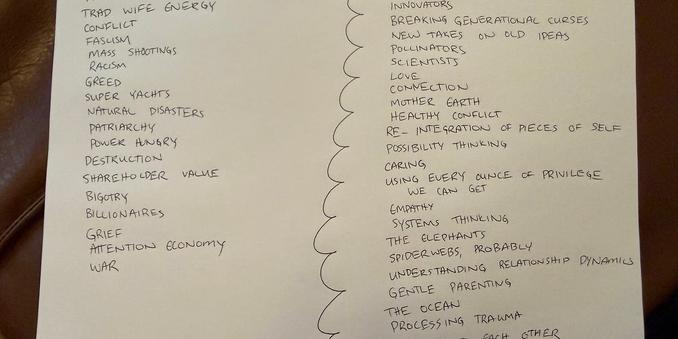 TRAD WIFE ENERGY
CONFLICT
FASCISM
MASS SHOOTINGS
RACISM
GREED
SUPER YACHTS
NATURAL DISASTERS
PATRIARCHY
POWER HUNGRY
DESTRUCTION
SHAREHOLDER VALUE
BIGOTRY
BILLIONAIRES
GRIEF
ATTENTION ECONOMY
WAR
INNOVATORS
BREAKING GENERATIONAL CURSES
NEW TAKES ON OLD IDEAS
POLLINATORS
SCIENTISTS
LOVE
CONNECTION
MOTHER EARTH
HEALTHY CONFLICT
RE-INTEGRATION OF PIECES OF SELF
POSSIBILITY THINKING
CARING
USING EVERY OUNCE OF PRIVILEGE
WE CAN GET
EMPATHY
SYSTEMS THINKING
THE ELEPHANTS
SPIDERWEBS, PROBABLY
UNDERSTANDING RELATIONSHIP DYNAMICS
GENTLE PARENTING
THE OCEAN
PROCESSING TRAUMA
EACH OTHER